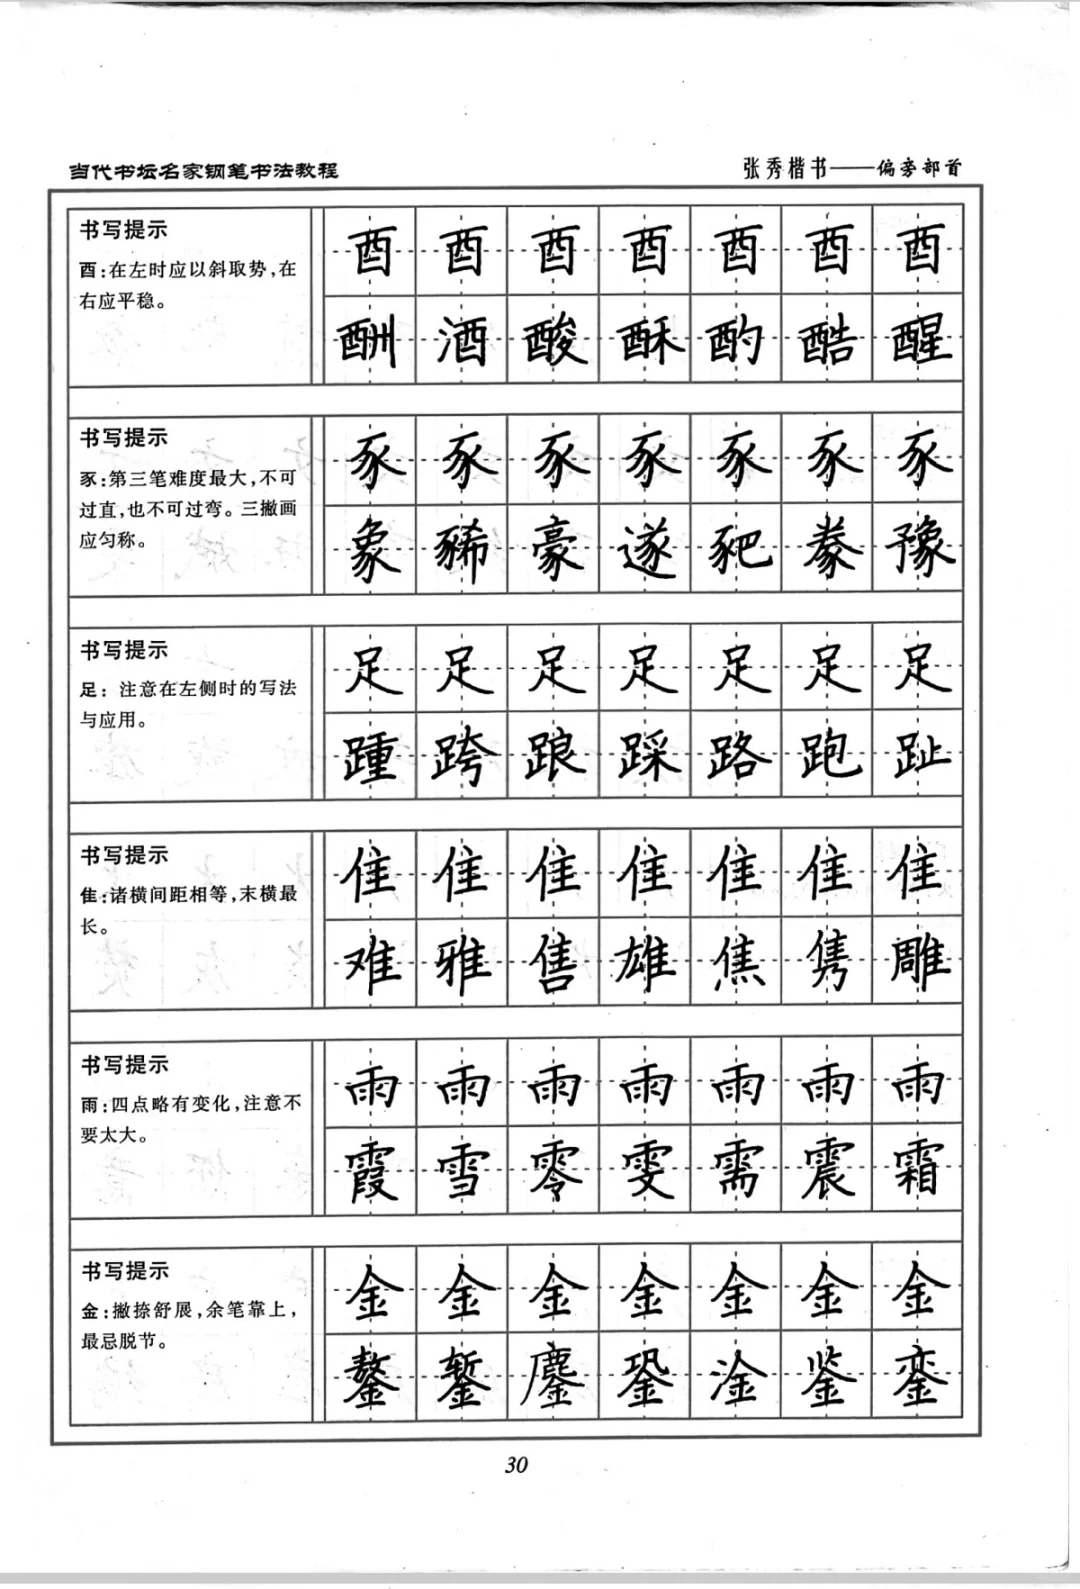 当代书坛名家钢笔书法教程
张秀楷书——偏旁部首
书写提示
酉:在左时应以斜取势,在
右应平稳。
酉 酉 酉 酉 酉 酉 酉
酬 酒 酸 酥 酌 酷 醒
书写提示
豕:第三笔难度最大,不可
过直,也不可过弯。三撇画
应匀称。
豕 豕 豕 豕 豕 豕 豕
象 豨 豪 遂 豝 豢 豫
书写提示
足: 注意在左侧时的写法
与应用。
足 足 足 足 足 足 足
踵 跨 踉 踩 路 跑 趾
书写提示
隹:诸横间距相等,末横最
长。
隹 隹 隹 隹 隹 隹 隹
难 雅 售 雄 焦 隽 雕
书写提示
雨:四点略有变化,注意不
要太大。
雨 雨 雨 雨 雨 雨 雨
霞 雪 零 雯 需 震 霜
书写提示
金:撇捺舒展,余笔靠上,
最忌脱节。
金 金 金 金 金 金 金
鏊 錾 鏖 銎 淦 鉴 銮
30